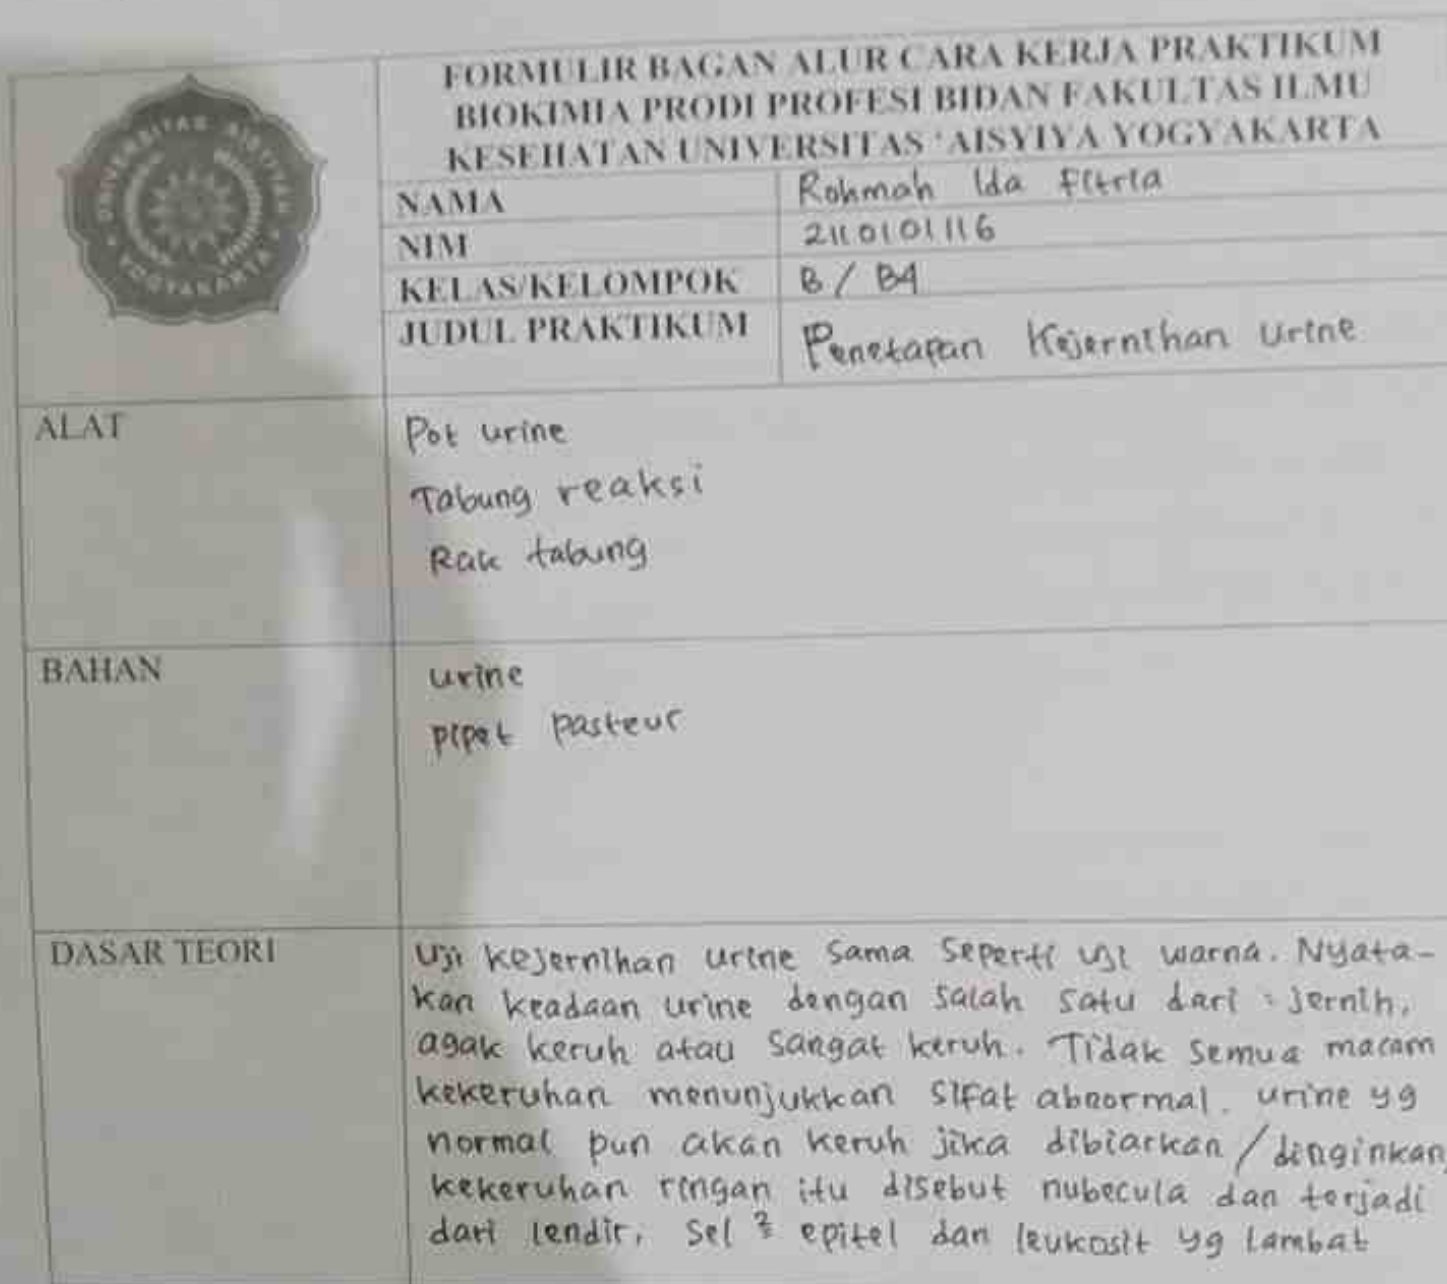 FORMULIR BAGAN ALUR CARA KERJA PRAKTIKUM
BIOKIMIA PRODI PROFESI BIDAN FAKULTAS ILMU
KESEHATAN UNIVERSITAS 'AISYIYA YOGYAKARTA
UNIVERSITAS 'AISYIYAH
YOGYAKARTA
NAMA Rohmah Ida Fitria
NIM 2110101116
KELAS/KELOMPOK B / B4
JUDUL PRAKTIKUM Penetapan Kejernihan Urine
ALAT Pot urine
Tabung reaksi
Rak tabung
BAHAN urine
pipet pasteur
DASAR TEORI Uji kejernihan urine sama seperti uji warna. Nyata-
kan keadaan urine dengan salah satu dari : jernih,
agak keruh atau sangat keruh. Tidak semua macam
kekeruhan menunjukkan sifat abnormal. urine yg
normal pun akan keruh jika dibiarkan / dinginkan
kekeruhan ringan itu disebut nubecula dan terjadi
dari lendir, sel ² epitel dan leukosit yg lambat